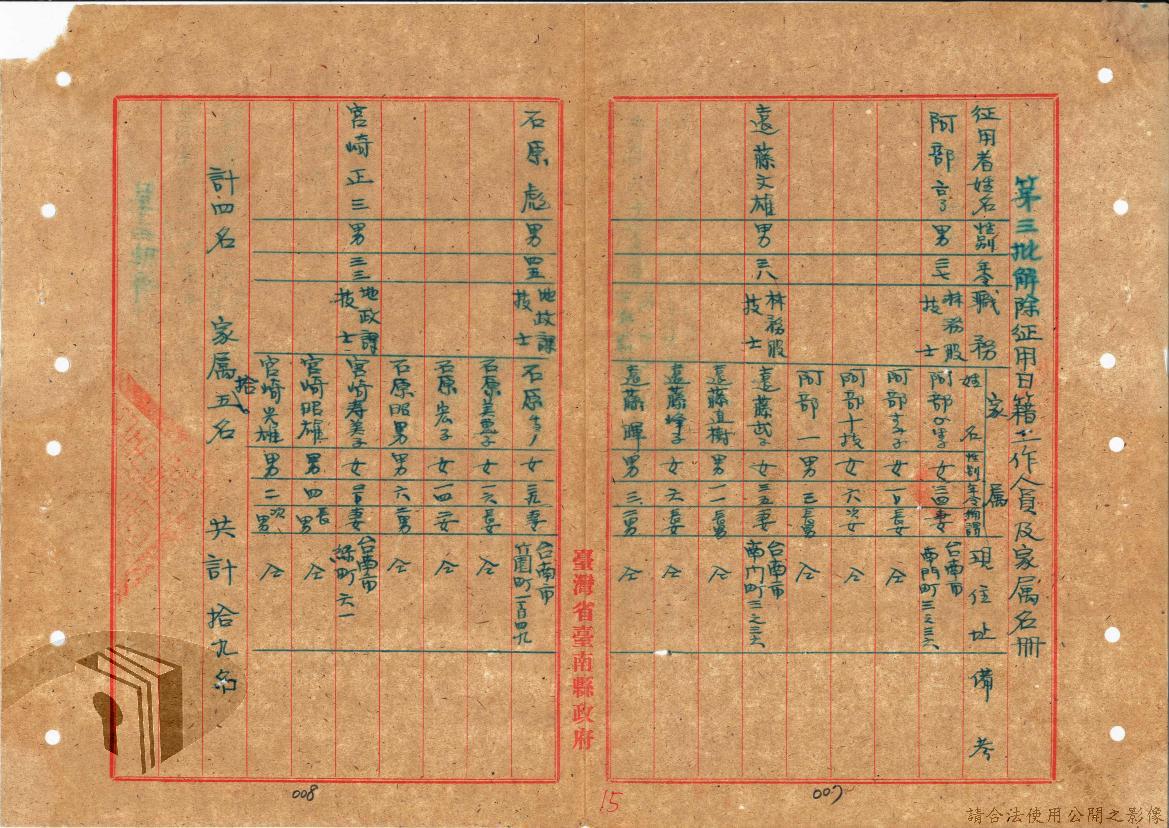 第三批解除征用日籍工作人員及家属名冊
征用者姓名 性別 年令 職務 家属 姓名 性別 年令 稱謂 現住址 備考
阿部 男 三七 林務股技士 阿部 女 三四 妻 台南市南門町三之三六
阿部 女 長女 仝
阿部十枝 女 六 次女 仝
阿部一 男 三 長男 仝
遠藤文雄 男 三八 林務股技士 遠藤武子 女 三五 妻 台南市南门町三之三六
遠藤直樹 男 一一 長男 仝
遠藤峰子 女 六 長女 仝
遠藤暉 男 三 二男 仝
石原彪 男 四五 地政課技士 石原 女 三九 妻 台南市竹園町一百四九
石原美惠子 女 一六 長女 仝
石原宏子 女 一四 二女 仝
石原昭男 男 六 二男 仝
宮崎正三 男 三三 地政課技士 宮崎寿美子 女 妻 台南市綠町六一
宮崎昭雄 男 四 長男 仝
宮崎光雄 男 二 次男 仝
計四名 家属五名 拾 共計拾九名
臺灣省臺南縣政府
008
15
007
請合法使用公開之影像